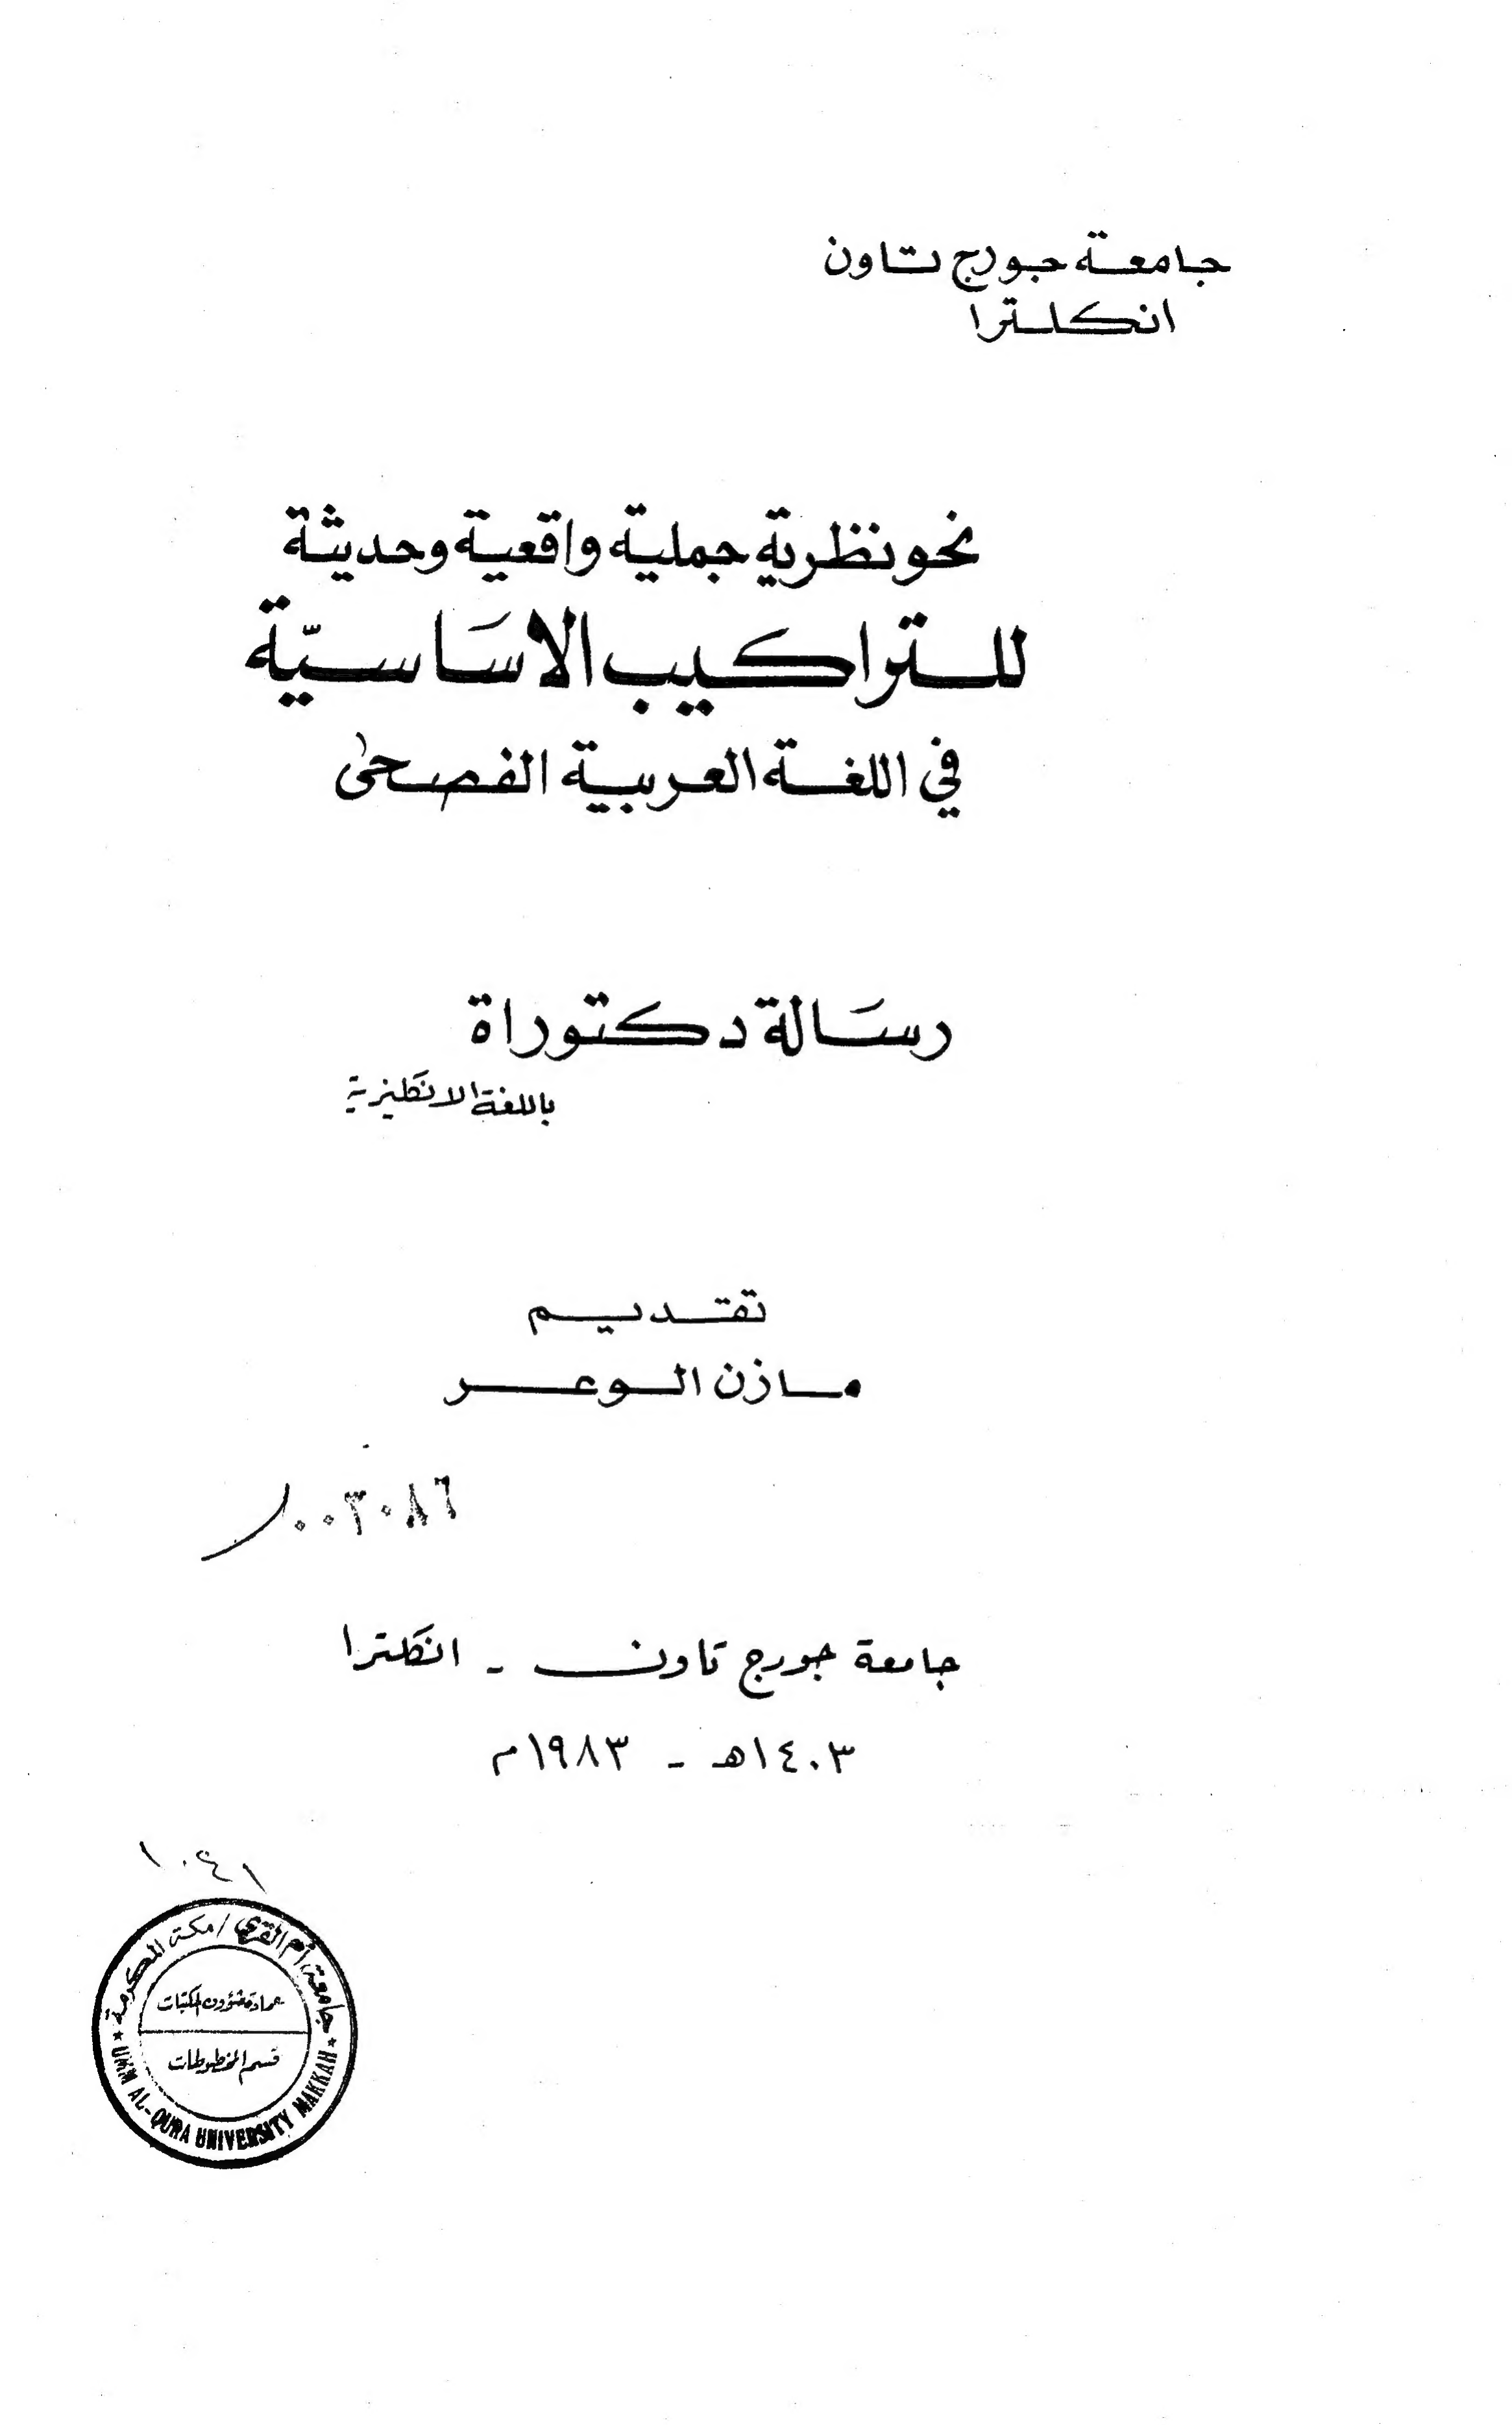 جامعة جورج تاون
انكلترا
نحو نظرية جملية واقعية وحديثة
للتراكيب الاسَاسيّة
في اللغة العربية الفصحى
رسَالة دكتوراة
باللغة الانكليزية
تقديم
مازن الوعر
١٠٠٣٠٨٦
جامعة جورج تاون - انكلترا
١٤٠٣هـ - ١٩٨٣م
١٠٤١
جامعة أم القرى / مكة المكرمة
عمادة شؤون المكتبات
قسم المخطوطات
* UMM AL-QURA UNIVERSITY MAKKAH *